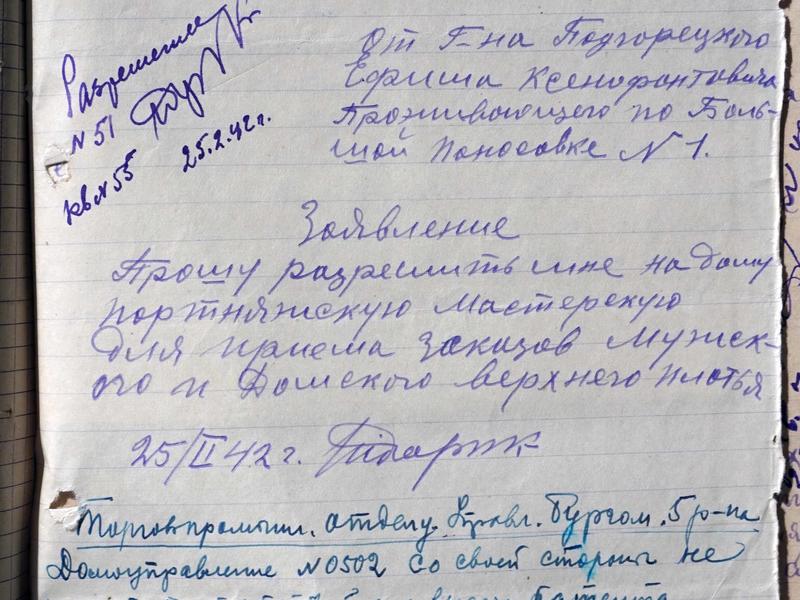 Разрешение
N 51
25.2.42г.
кв N 55
От Г-на Подгорецкого
Ефима Ксенофонтовича
Проживающего по Боль-
шой Панасовке N 1.
Заявление
Прошу разрешить мне на дому
портняжскую мастерскую
для приема заказов мужск-
ого и Дамского верхнего платья
25/II 42 г.
Торговпромышл. отделу. Управл. Бургом. 5 р-на
Домоуправление N 0502 Со своей стороны не